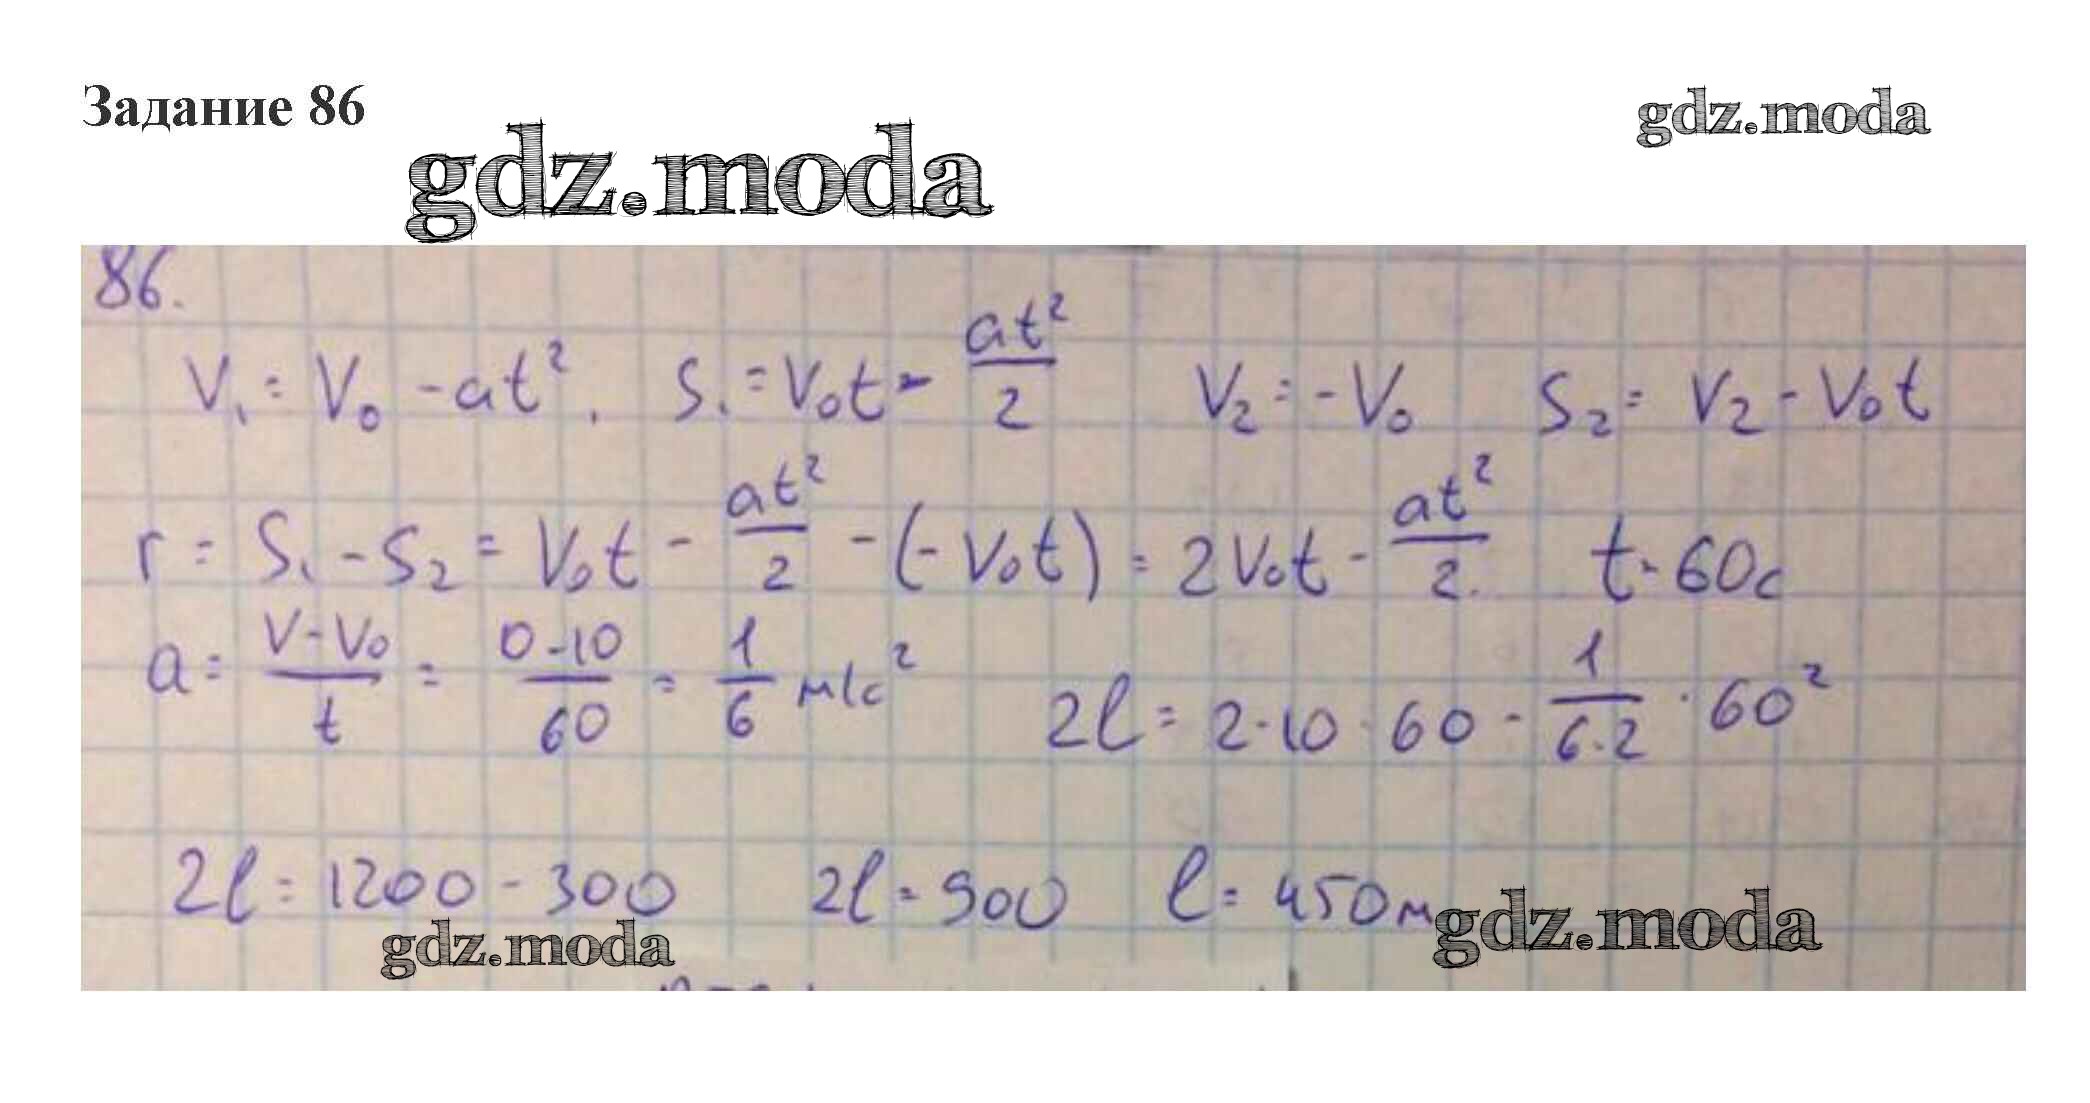 Задание 86
gdz.moda
gdz.moda
86.
V₁ = V₀ - at². S₁ = V₀t - at²/2 V₂ = -V₀ S₂ = V₂ - V₀t
r = S₁ - S₂ = V₀t - at²/2 - (- V₀t) = 2V₀t - at²/2. t = 60c
a = V-V₀/t = 0-10/60 = 1/6 м/с² 2l = 2·10·60 - 1/6·2 · 60²
2l = 1200 - 300 2l = 900 l = 450м
gdz.moda
gdz.moda